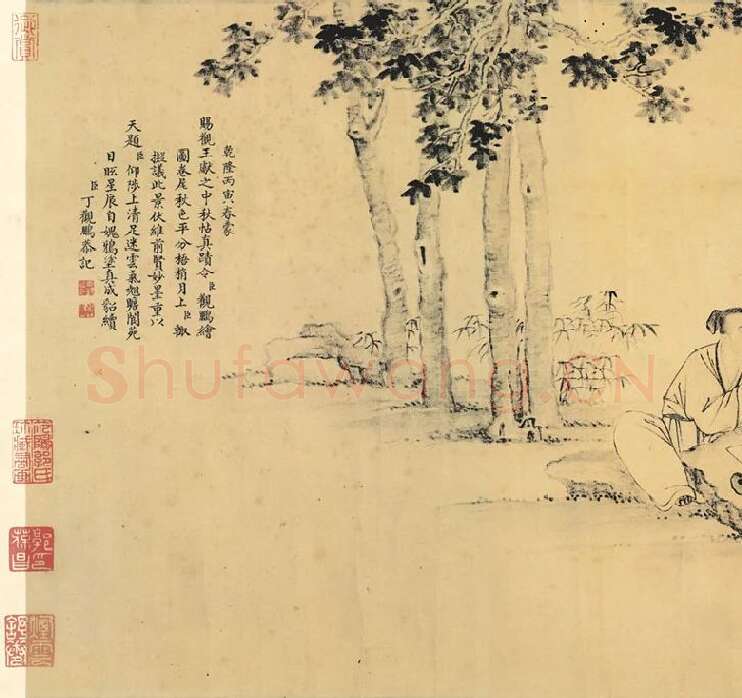 乾隆丙寅春蒙
賜觀王獻之中秋帖真蹟令臣觀鵬繪
圖卷尾秋色平分梧梢月上臣
擬議此景伏維前賢妙墨重以
天題臣仰陟上清足迷雲氣旭瞻閬苑
目眩星辰自媿鴉塗真成貂續
臣丁觀鵬恭記
Shufawang.CN